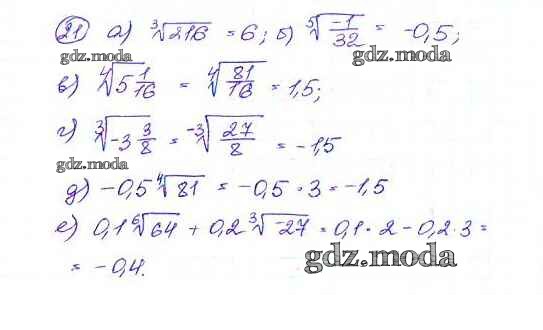 21 а) ∛216 = 6; б) ⁵√(-1/32) = -0,5;
gdz.moda
gdz.moda
в) ⁴√(5 1/16) = ⁴√(81/16) = 1,5;
г) ∛(-3 3/8) = -∛(27/8) = -1,5
gdz.moda
д) -0,5 ⁴√81 = -0,5 · 3 = -1,5
е) 0,1 ⁶√64 + 0,2 ∛-27 = 0,1 · 2 - 0,2 · 3 =
= -0,4.
gdz.moda